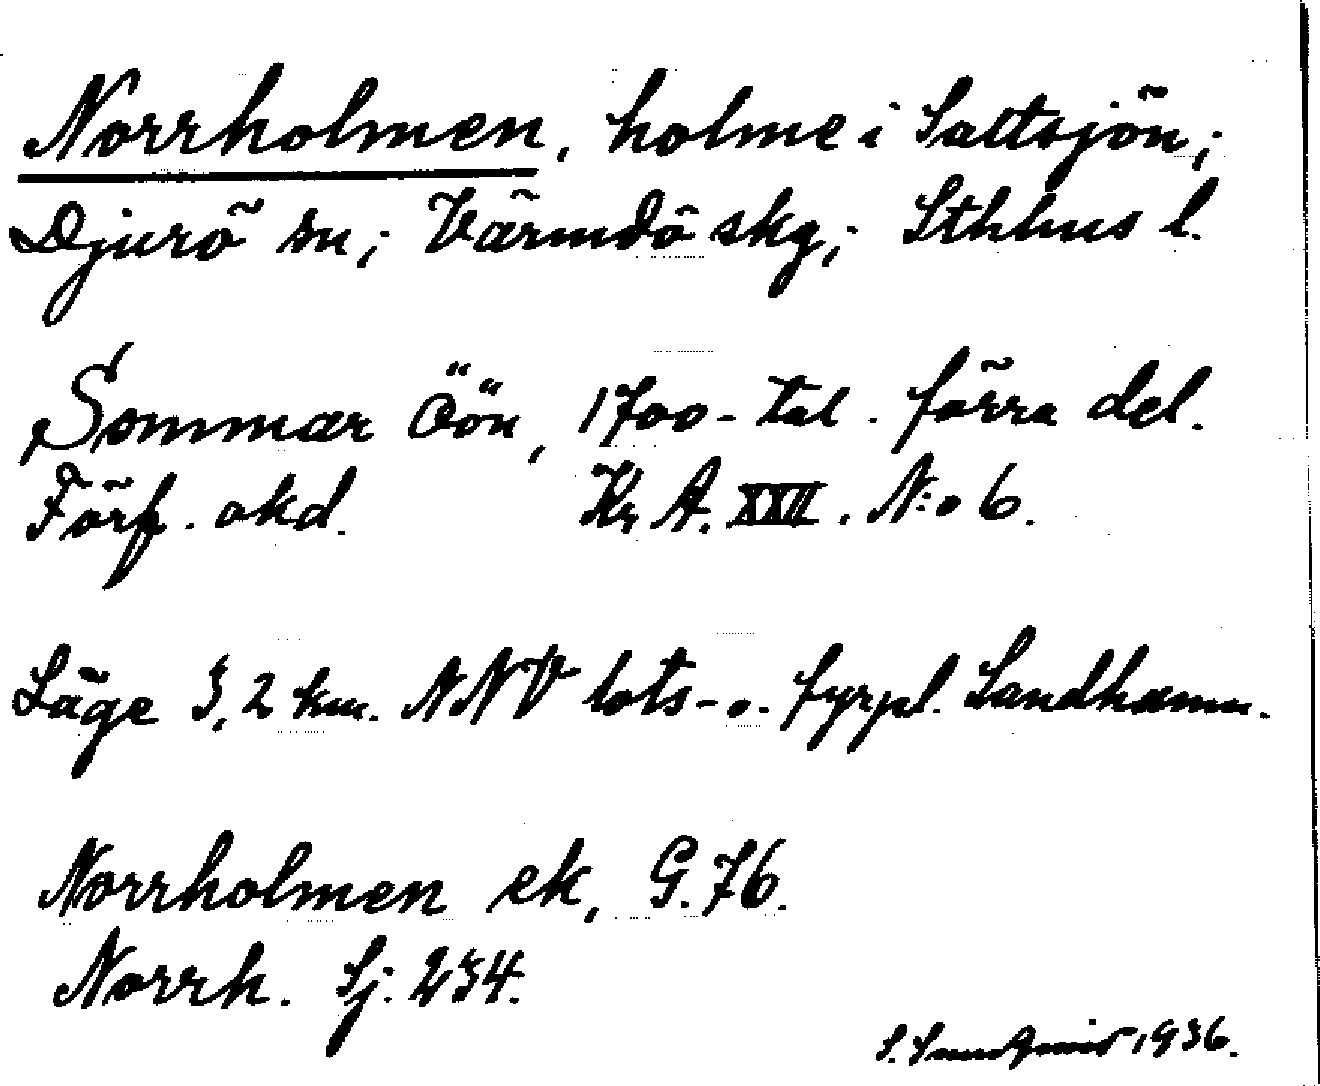 Norrholmen, holme i Saltsjön;
Djurö sn; Värmdö skg; Sthlms l.
Sommar Öön, 1700-tal. förra del.
Förf. okd. Kr. A. XXII. N:o 6.
Läge 3,2 km. NNV lots- o. fyrpl. Sandhamn.
Norrholmen ek, G. 76.
Norrh. Sj. 234.
S. 1936.